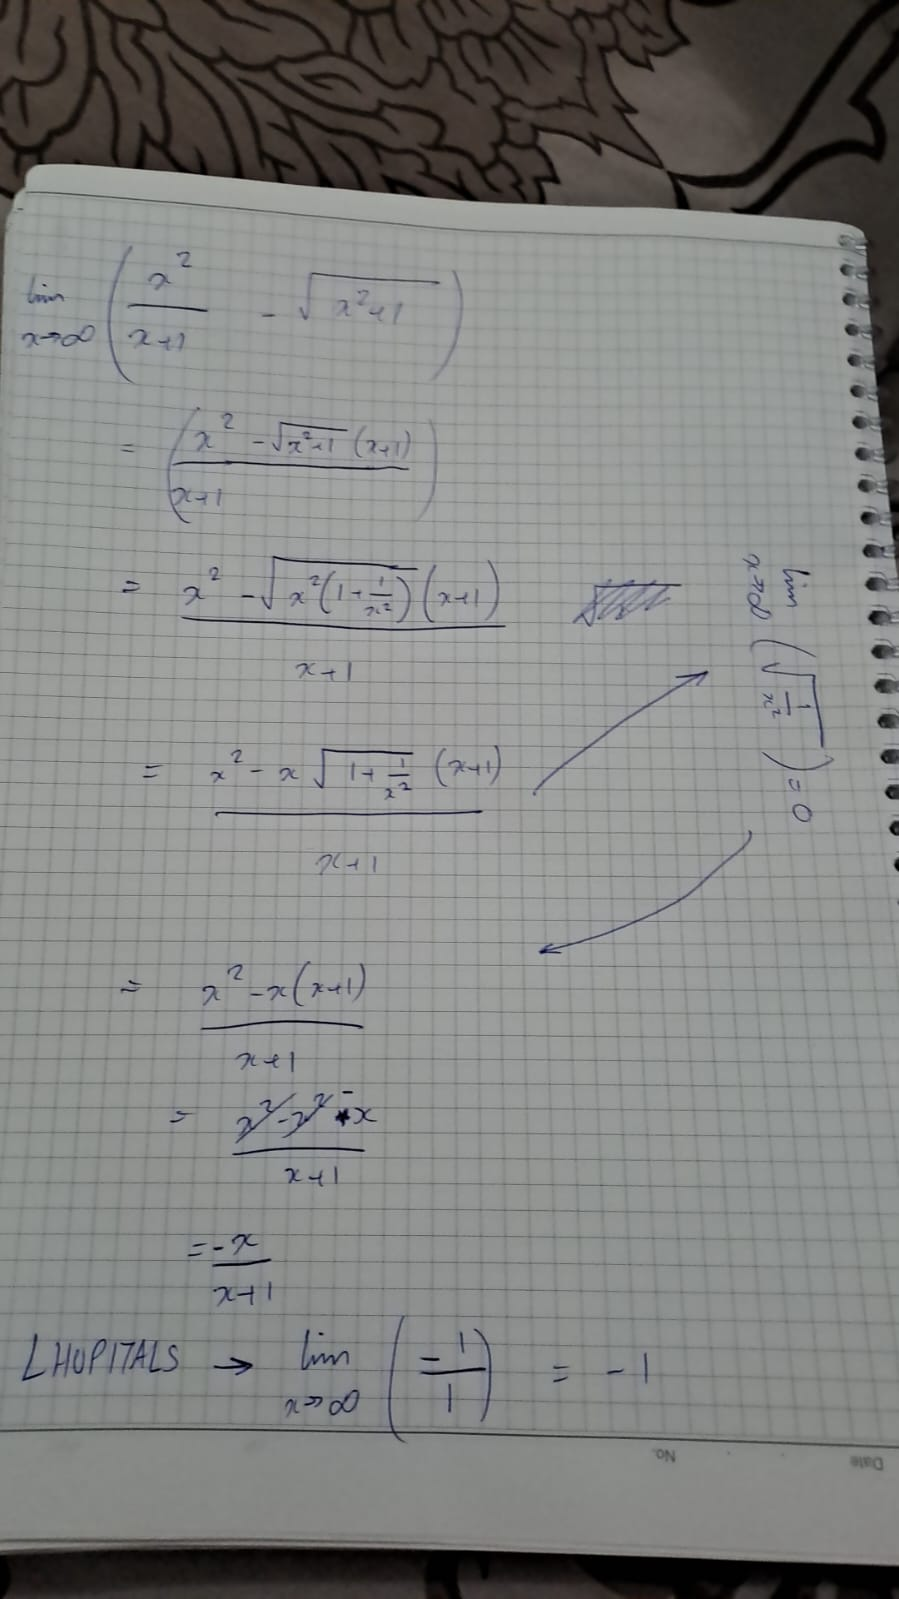 lim x→∞ ( x² / (x+1) - √(x²+1) )
= ( (x² - √(x²+1) (x+1)) / (x+1) )
= (x² - √(x²(1+1/x²)) (x+1)) / (x+1)
= (x² - x √(1+1/x²) (x+1)) / (x+1)
lim x→∞ (√(1/x²)) = 0
= (x² - x(x+1)) / (x+1)
= (x² - x² - x) / (x+1)
= -x / (x+1)
LHOPITALS → lim x→∞ (-1/1) = -1
No.
Date